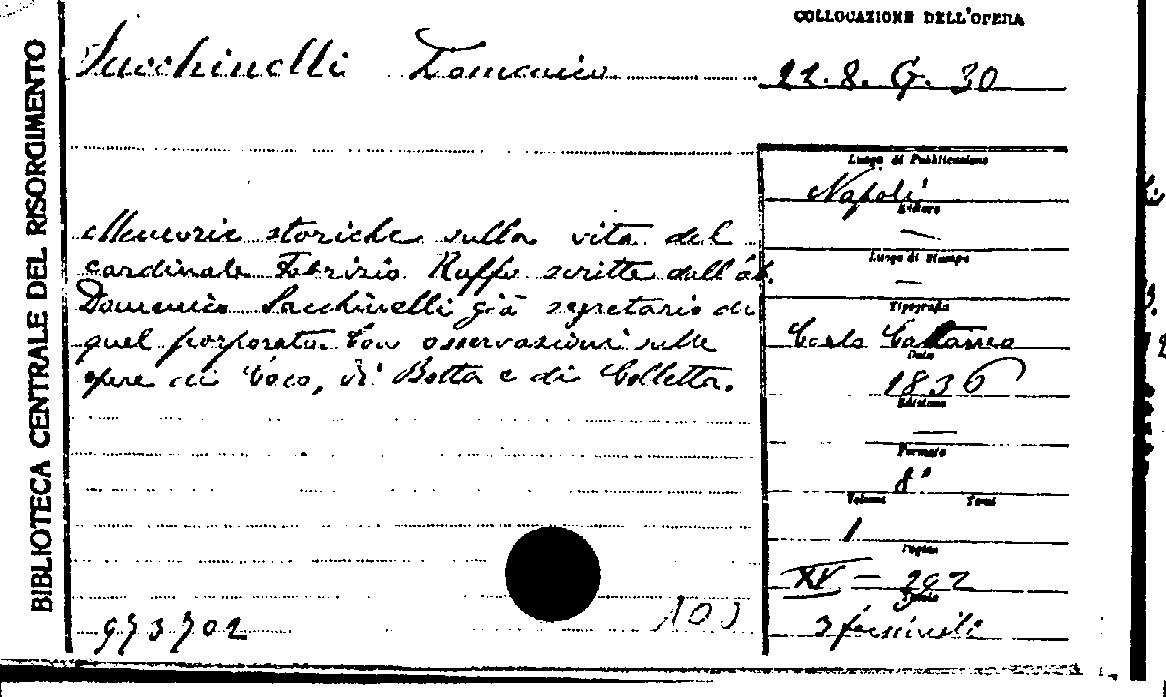 COLLOCAZIONE DELL'OPERA
BIBLIOTECA CENTRALE DEL RISORGIMENTO
Sacchinelli Domenico
22.8.G.30
Luogo di Pubblicazione
Napoli
Editore
—
Memorie storiche sulla vita del
cardinale Fabrizio Ruffo scritte dall'ab.
Domenico Sacchinelli già segretario di
quel porporato con osservazioni sulle
opere di Coco, di Botta e di Colletta.
Luogo di Stampa
—
Tipografia
Carlo Cattaneo
Data
1836
Edizione
—
Formato
8°
Volumi Tomi
1
Pagine
XV = 292
973702